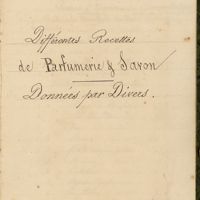 Différentes Recettes
de Parfumerie & Savon
Données par Divers.